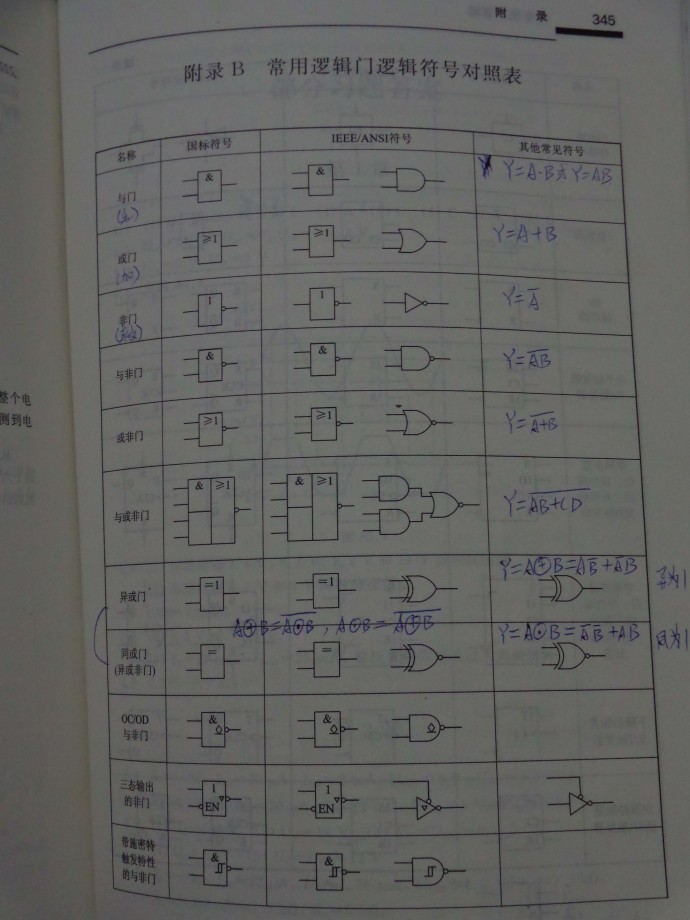 附 录 345
附录 B 常用逻辑门逻辑符号对照表
名称 国标符号 IEEE/ANSI符号 其他常见符号
与门 & & Y=A·B Y=AB
或门 ≥1 ≥1 Y=A+B
(加)
非门 1 1 Y=A̅
与非门 & & Y=A̅B̅
或非门 ≥1 ≥1 Y=A̅+̅B̅
与或非门 & ≥1 & ≥1 Y=A̅B̅+̅C̅D̅
异或门 =1 =1 Y=A⊕B=AB̅+A̅B
A⊕B=A̅⊙̅B̅, A⊙B=A̅⊕̅B̅
同或门 = = Y=A⊙B=A̅B̅+AB
(异或非门)
OC/OD
与非门 & &
三态输出
的非门 1 EN 1 EN
带施密特
触发特性
的与非门 & &
整个电
测到电